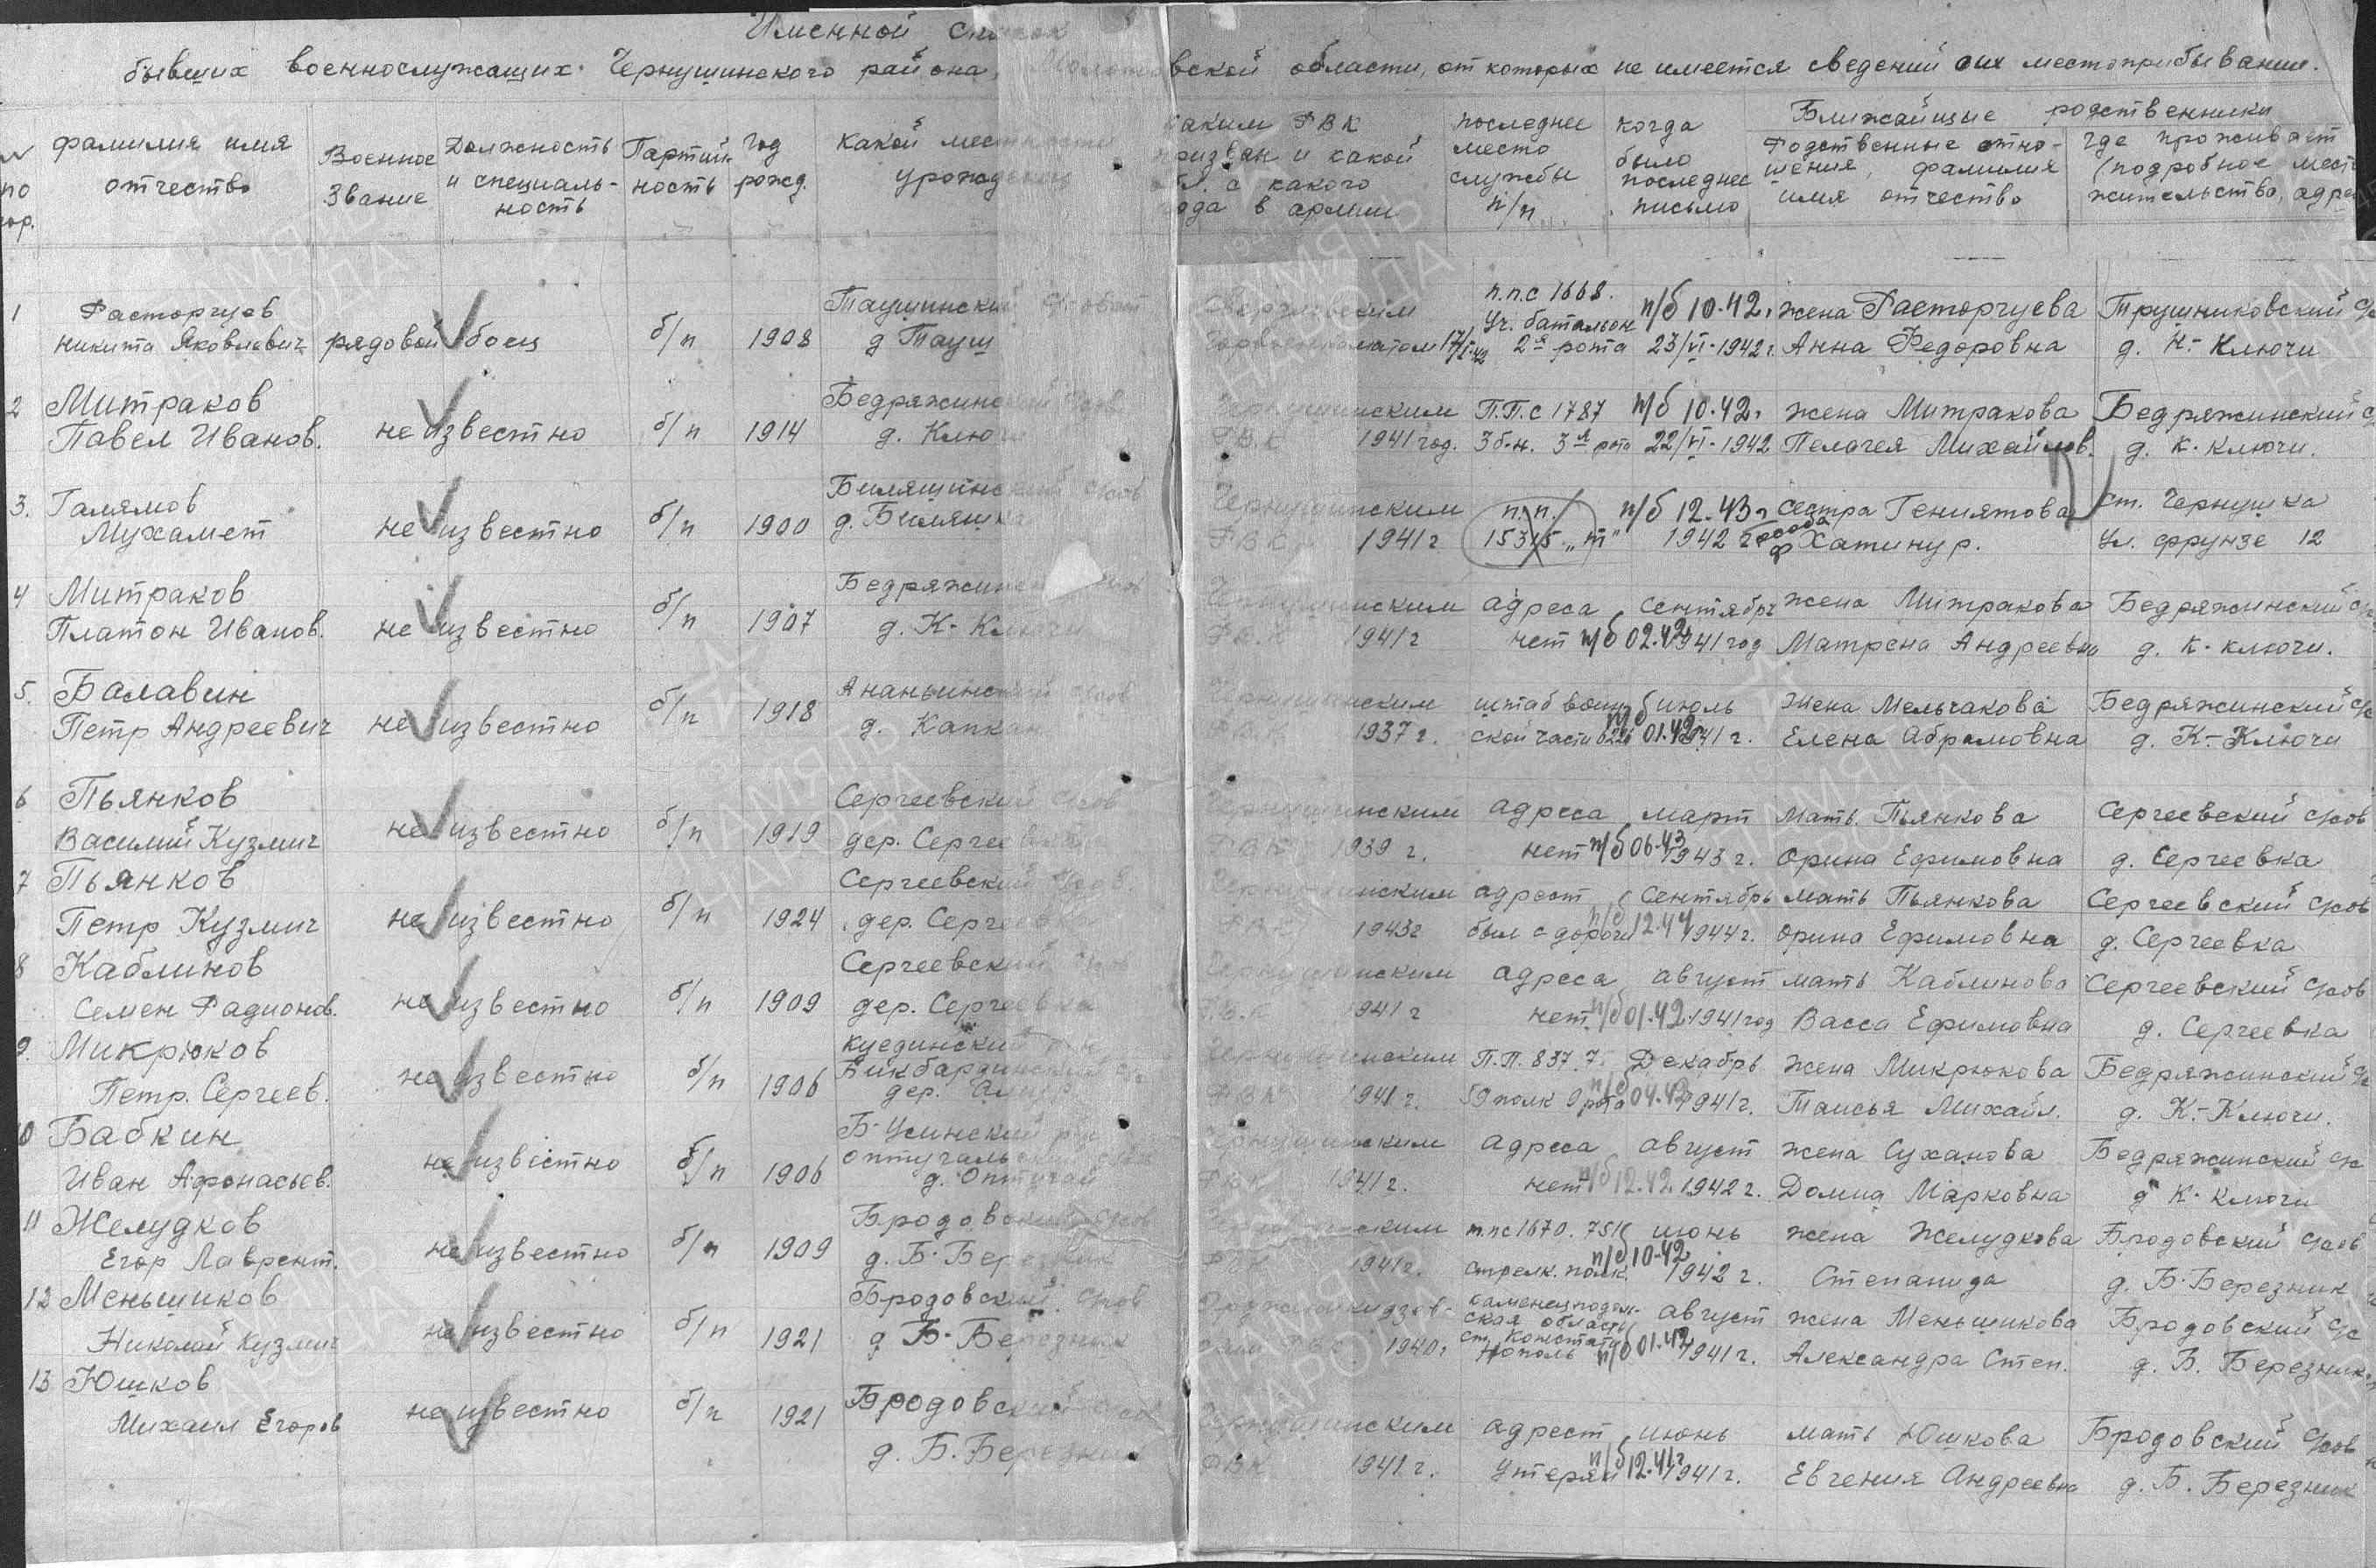 Именной список
бывших военнослужащих Чернушинского района, Молотовской области, от которых не имеется сведений о их местоприбывании.
№ по пор.
фамилия имя отчество
Военное Звание
Должность и специаль-ность
Партий-ность
Год рожд.
Какой местности урожденец
каким РВК призван и какой обл. с какого года в армии
последнее место службы п/п
когда было последнее письмо
Ближайщие родственники
Родственные отно-шения, фамилия имя отчество
где проживает (подробное место жительства, адрес
1 Расторгуев Таушинский п.п.с 1668. п/б 10.42. жена Расторгуева Трушниковский с/с
Никита Яковлевич рядовой боец б/п 1908 д Тауш 17/I-42 Уч. батальон 2я рота 23/VI-1942г. Анна Федоровна д. К-Ключи
2 Митраков Бедряжинский с/сов Чернушинским П.П.с 1787 п/б 10.42. жена Митракова Бедряжинский с/с
Павел Иванов. не известно б/п 1914 д. Ключи РВК 1941 год. 3 б-н. 3я рота 22/VI-1942 Пелагея Михайлов. д. К. Ключи.
3. Галямов Биляшинский с/сов Чернушинским п.п. п/б 12.43. сестра Гениятова ст. Чернушка
Мухамет не известно б/п 1900 д. Биляшка РВК 1941 г 15315 „т" 1942 года Хатинур. Ул. Фрунзе 12
4 Митраков Бедряжинский с/сов Чернушинским адреса сентябрь жена Митракова Бедряжинский с/с
Платон Иванов. не известно б/п 1907 д. К-Ключи РВК 1941 г нет п/б 02.42 1941 год Матрена Андреевна д. К. Ключи.
5. Балавин Ананьинский с/сов Чернушинским штаб воин июль жена Мельчакова Бедряжинский с/с
Петр Андреевич не известно б/п 1918 д. Капкан РВК 1937 г. ской части п/б 01.42 1941 г. Елена Абрамовна д. К-Ключи
6 Пьянков Сергеевский с/сов Чернушинским адреса март мать Пьянкова Сергеевский с/сов
Василий Кузмич не известно б/п 1919 дер. Сергеевка РВК 1939 г. нет п/б 06.43 1943 г. Орина Ефимовна д. Сергеевка
7 Пьянков Сергеевский с/сов. Чернушинским адрест сентябрь мать Пьянкова Сергеевский с/сов
Петр Кузмич не известно б/п 1924 дер. Сергеевка РВК 1943г был с дороги п/б 12.44 1944 г. Орина Ефимовна д. Сергеевка
8 Каблинов Сергеевский с/сов Чернушинским адреса август мать Каблинова Сергеевский с/сов
Семен Радионов. не известно б/п 1909 дер. Сергеевка РВК 1941 г нет п/б 01.42 1941 год Васса Ефимовна д. Сергеевка
9. Микрюков Куединский р-н Чернушинским П.П. 837. Декабрь жена Микрюкова Бедряжинский с/с
Петр. Сергеев. не известно б/п 1906 Бикбардинский с/с дер. РВК 1941 г. полк рота п/б 04.42 1941г. Таисья Михайл. д. К-Ключи.
10 Бабкин Б-Усинский р-н Чернушинским адреса август жена Суханова Бедряжинский с/с
Иван Афонасьев. не известно б/п 1906 д. РВК 1941 г. нет п/б 12.42 1942 г. Домна Марковна д К. Ключи
11 Желудков Бродовский с/сов Чернушинским п.пс 1670. 751 июнь жена Желудкова Бродовский с/сов
Егор Лаврент. не известно б/п 1909 д. Б. Березник РВК 1941г. стрелк. полк. п/б 10.42 1942 г. Степанида д. Б. Березник
12 Меньшиков Бродовский с/сов Орджоникидзов-ским РВК каменецподол-ская область август жена Меньшикова Бродовский с/с
Николай Кузмич не известно б/п 1921 д Б. Березник 1940г ст. п/б 01.42 1941 г. Александра Степ. д. Б. Березник.
13 Юшков Бродовский с/сов Чернушинским адрест июнь мать Юшкова Бродовский с/сов
Михаил Егоров не известно б/п 1921 д. Б. Березник РВК 1941 г. утерян п/б 12.41г. 1941 г. Евгения Андреевна д. Б. Березник
ПАМЯТЬ НАРОДА